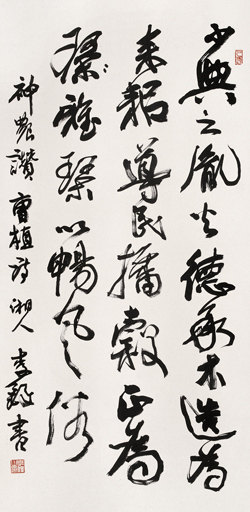 少典之胤火德承木造為
耒耜導民播穀正為
雅琴以暢風俗
神農讚 曹植詩 湘人 李鐸書